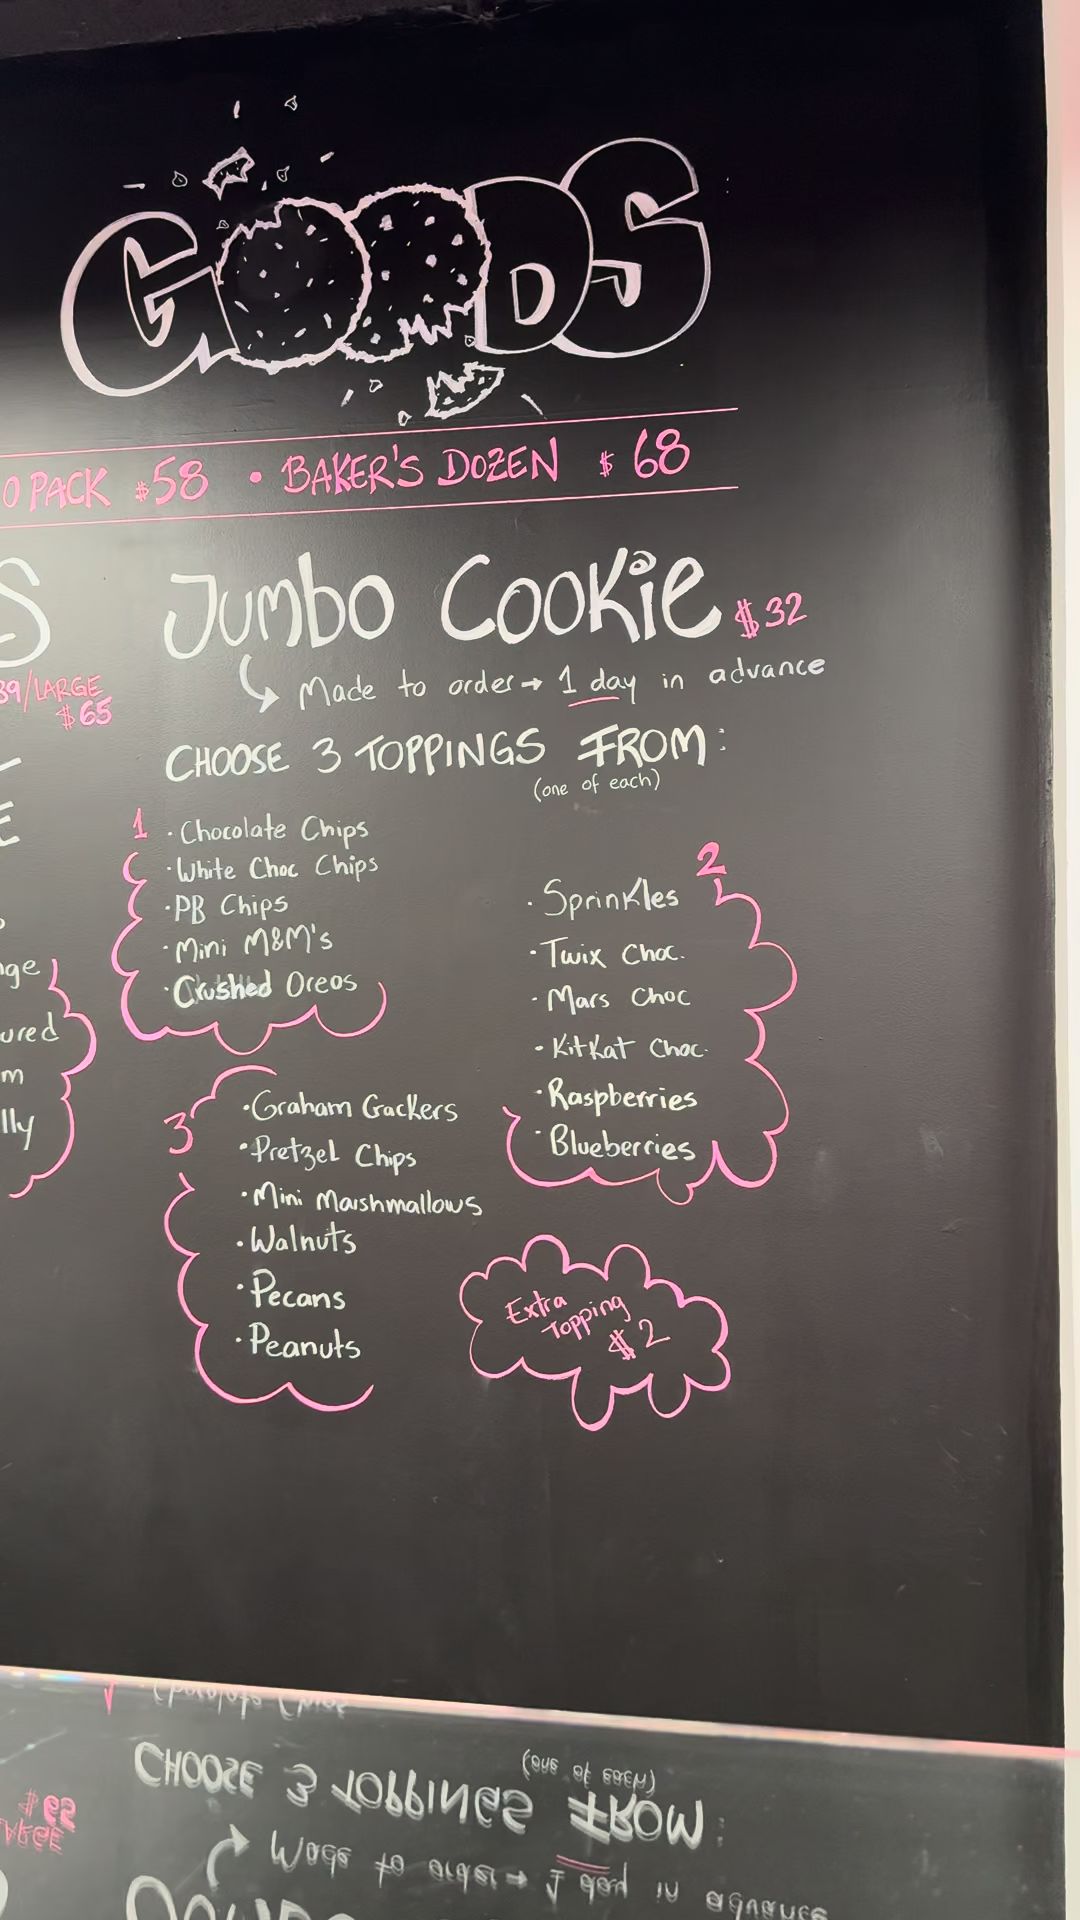 GOODS
0 PACK $58 • BAKER'S DOZEN $68
S
39/LARGE
$65
E
nge
ured
m
lly
Jumbo Cookie $32
Made to order → 1 day in advance
CHOOSE 3 TOPPINGS FROM:
(one of each)
1
· Chocolate Chips
· White Choc Chips
· PB Chips
· Mini M&M's
· Crushed Oreos
2
· Sprinkles
· Twix Choc.
· Mars Choc
· KitKat Choc.
· Raspberries
· Blueberries
3
· Graham Crackers
· Pretzel Chips
· Mini Marshmallows
· Walnuts
· Pecans
· Peanuts
Extra
Topping
$2
Chocolate Chips
CHOOSE 3 TOPPINGS FROM:
(one of each)
Made to order → 1 day in advance
$65
LARGE